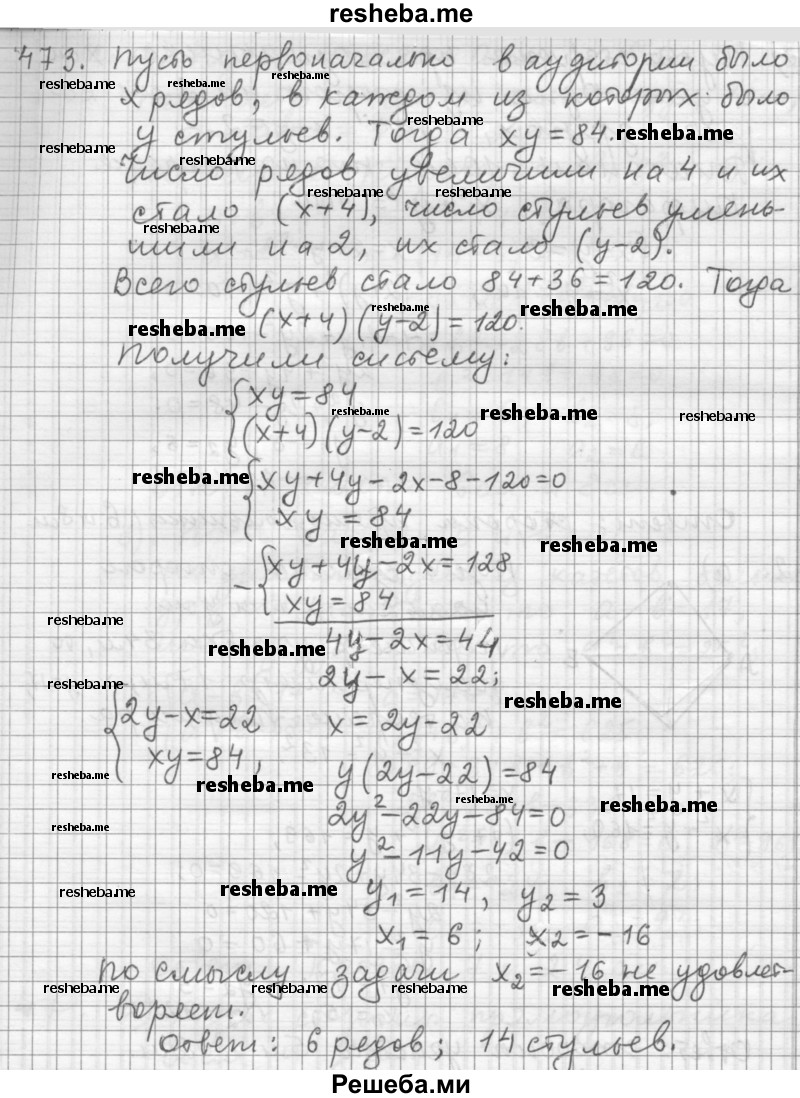 resheba.me
473. Пусть первоначально в аудитории было
resheba.me resheba.me resheba.me
x рядов, в каждом из которых было
resheba.me
y стульев. Тогда xy = 84. resheba.me
resheba.me resheba.me
Число рядов увеличили на 4 и их
resheba.me resheba.me
стало (x+4), число стульев умень-
resheba.me
шили на 2, их стало (y-2).
Всего стульев стало 84+36=120. Тогда
resheba.me (x+4)(y-2)=120. resheba.me resheba.me
Получили систему:
{xy=84
resheba.me resheba.me resheba.me
{(x+4)(y-2)=120
resheba.me {xy+4y-2x-8-120=0
{xy=84
resheba.me resheba.me
-{xy+4y-2x=128
{xy=84
resheba.me
resheba.me 4y-2x=44
resheba.me 2y-x=22;
resheba.me
{2y-x=22 x=2y-22
{xy=84, y(2y-22)=84
resheba.me resheba.me
resheba.me resheba.me
2y²-22y-84=0
resheba.me
y²-11y-42=0
resheba.me resheba.me y₁=14, y₂=3
x₁=6; x₂=-16
По смыслу задачи x₂=-16 не удовлет-
resheba.me resheba.me resheba.me resheba.me
воряет.
Ответ: 6 рядов; 14 стульев.
Решеба.ми